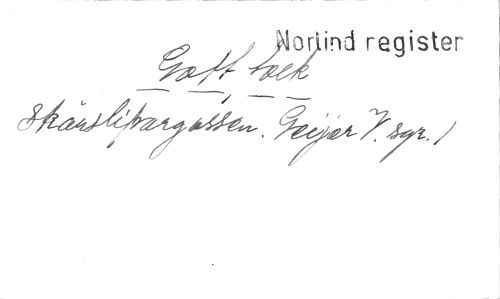 Norlind register
Gott, tock
Skärslipargossen. Geijer V. sgr. 1